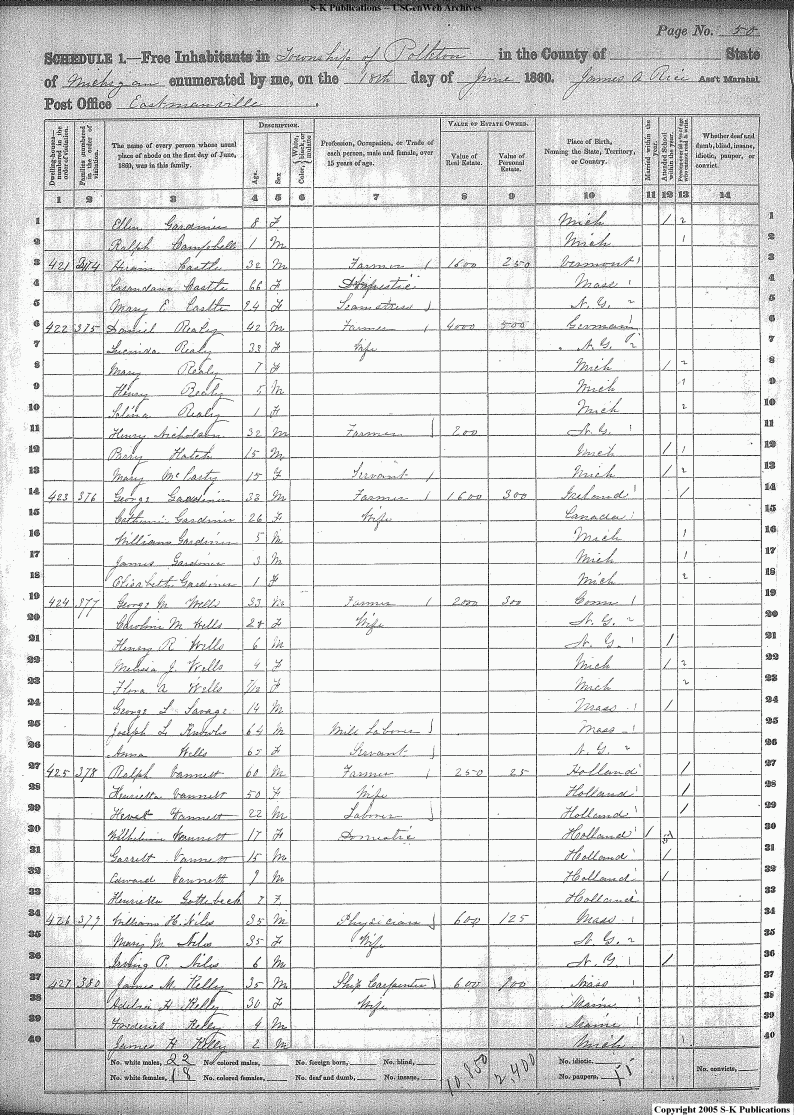 S-K Publications – USGenWeb Archives
Page No. 50
SCHEDULE 1.—Free Inhabitants in Township of Polkton in the County of State
of Michigan enumerated by me, on the day of June 1860. James A Rice Ass't Marshal
Post Office Eastmanville
Dwelling-houses—numbered in the order of visitation.
Families numbered in the order of visitation.
The name of every person whose usual place of abode on the first day of June, 1860, was in this family.
DESCRIPTION.
Age.
Sex
Color, White, black, or mulatto
Profession, Occupation, or Trade of each person, male and female, over 15 years of age.
VALUE OF ESTATE OWNED.
Value of Real Estate.
Value of Personal Estate.
Place of Birth, Naming the State, Territory, or Country.
Married within the year.
Attended School within the year.
Whether deaf and dumb, blind, insane, idiotic, pauper, or convict.
1 2 3 4 5 6 7 8 9 10 11 12 13 14
1 Ellen Gardiner 8 F Mich / 2 1
2 Ralph Campbell 1 M Mich 1 2
3 421 374 Hiram Castle 32 M Farmer 1600 250 Vermont 3
4 Castle 66 F Mass 4
5 Mary E Castle 24 F Seamstress N.Y. 5
6 422 375 Daniel Realy 42 M Farmer 4000 500 Germany 6
7 Lucinda Realy 33 F Wife N.Y. 7
8 Mary Realy 7 F Mich / 2 8
9 Henry Realy 5 M Mich 1 9
10 Salina Realy 1 F Mich 2 10
11 Henry Nicholson 32 M Farmer 200 N.Y. 11
12 Hatch 15 M Mich / 1 12
13 Mary McCarty 15 F Servant Mich / 2 13
14 423 376 George Gardiner 32 M Farmer 1600 300 Ireland / 14
15 Catherine Gardiner 26 F Wife Canada 15
16 William Gardiner 5 M Mich 1 16
17 James Gardiner 3 M Mich 1 17
18 Elizabeth Gardiner 1 F Mich 2 18
19 424 377 George M Wells 33 M Farmer 2000 300 Conn 19
20 Caroline M Wells 28 F Wife N.Y. 20
21 Henry R Wells 6 M N.Y. / 21
22 Melissa J Wells 4 F Mich / 2 22
23 Flora A Wells F Mich 2 23
24 George L Savage 14 M Mass / 24
25 Joseph L Knowles 64 M Mill Laborer Mass 25
26 Anna Wells 65 F Servant N.Y. 26
27 425 378 Ralph Vannett 60 M Farmer 250 25 Holland / 27
28 Henrietta Vannett 50 F Wife Holland / 28
29 Vannett 22 M Laborer Holland / 29
30 Wilhelmine Vannett 17 F Domestic Holland 30
31 Garrett Vannett 15 M Holland / 31
32 Edward Vannett 9 M Holland / 32
33 Henrietta Gottebeck F Holland 33
34 426 379 William H. Niles 35 M Physician 600 125 Mass 34
35 Mary M Niles 35 F Wife N.Y. 35
36 Irving P. Niles 6 M N.Y. / 36
37 427 380 James M. Kelley 35 M Ship Carpenter 600 Mass 37
38 H Kelley 30 F Wife Maine 38
39 Frederick Kelley 4 M Maine 39
40 James H Kelley 2 M Mich 1 40
No. white males, 22 No. colored males, No. foreign born, No. blind, 10,850 2,400 No. idiotic,
No. white females, 18 No. colored females, No. deaf and dumb, No. insane, No. paupers, No. convicts,
Copyright 2005 S-K Publications